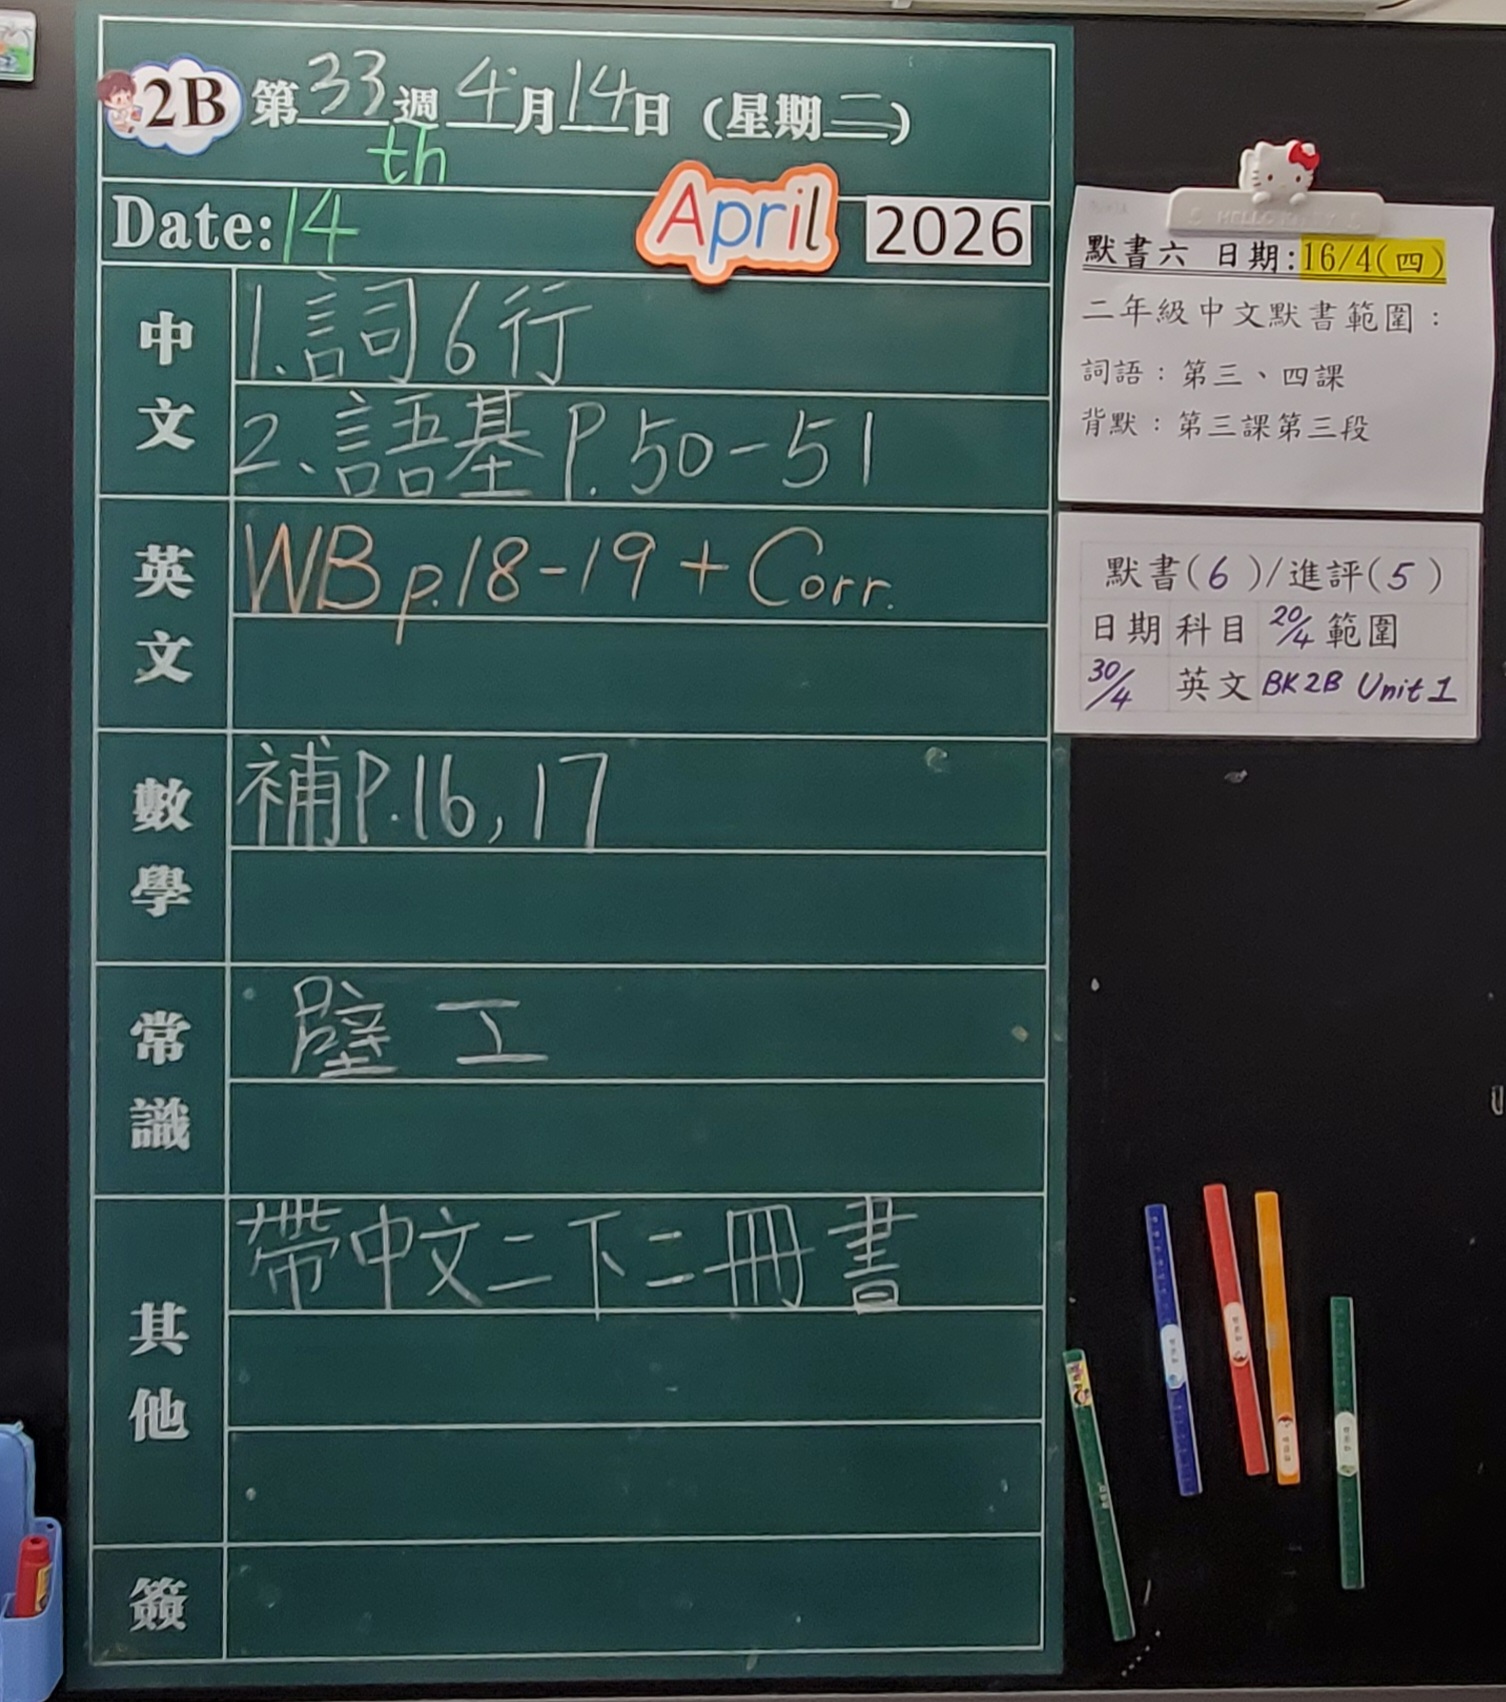 2B 第33週 4月14日 (星期二)
Date: 14th April 2026
中文
1.詞6行
2、語基P.50-51
英文
WB p.18-19 + Corr.
數學
補P.16,17
常識
壁工
其他
帶中文二下二冊書
簽
HELLO KITTY
默書六 日期:16/4(四)
二年級中文默書範圍:
詞語:第三、四課
背默:第三課第三段
默書(6)/進評(5)
日期 科目 20/4 範圍
30/4 英文 BK2B Unit 1